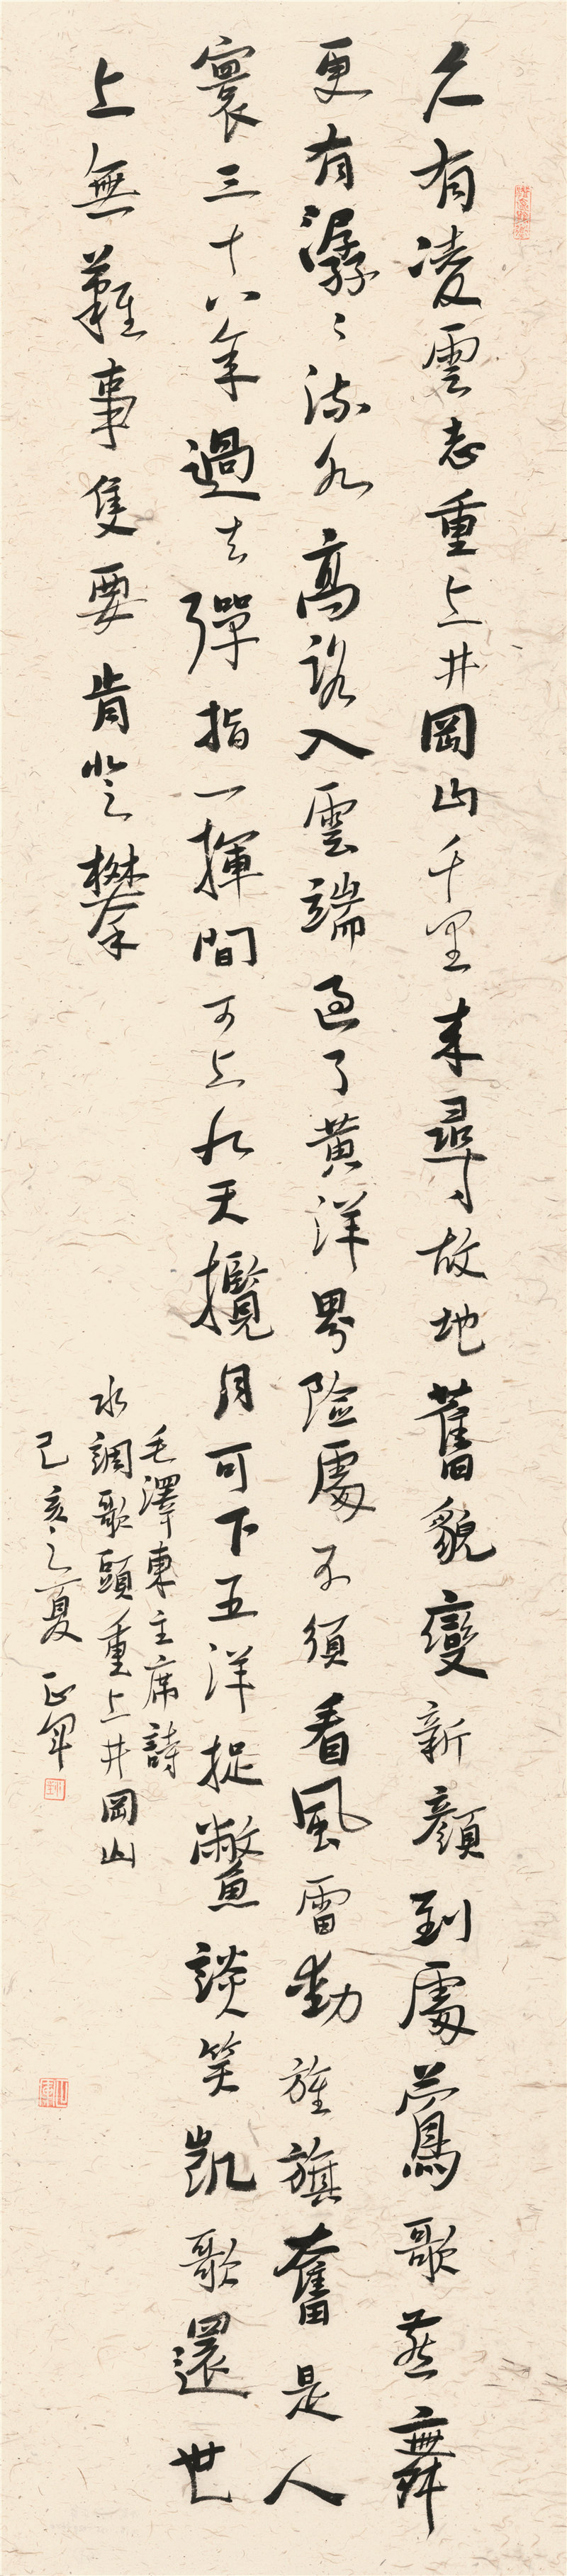 久有凌雲志重上井岡山千里來尋故地舊貌變新顏到處鶯歌燕舞
更有潺〻流水高路入雲端過了黃洋界險處不須看風雷動旌旗奮是人
寰三十八年過去彈指一揮間可上九天攬月可下五洋捉鱉談笑凱歌還世
上無難事隻要肯登攀
毛澤東主席詩
水調歌頭重上井岡山
己亥之夏 正軍